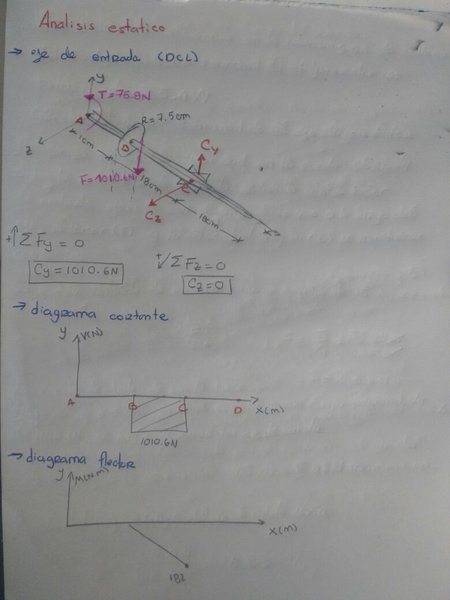 Analisis estatico
→ eje de entrada (DCL)
y
T=75.8N
R=7.5cm
A
B
z
1cm
Cy
F=1010.6N
18cm
C
Cz
18cm
+↑ΣFy = 0
Cy=1010.6N
+↙ΣFz=0
Cz=0
→ diagrama cortante
y V(N)
A B C D X(m)
1010.6N
→ diagrama flector
y M(N·m)
X(m)
182